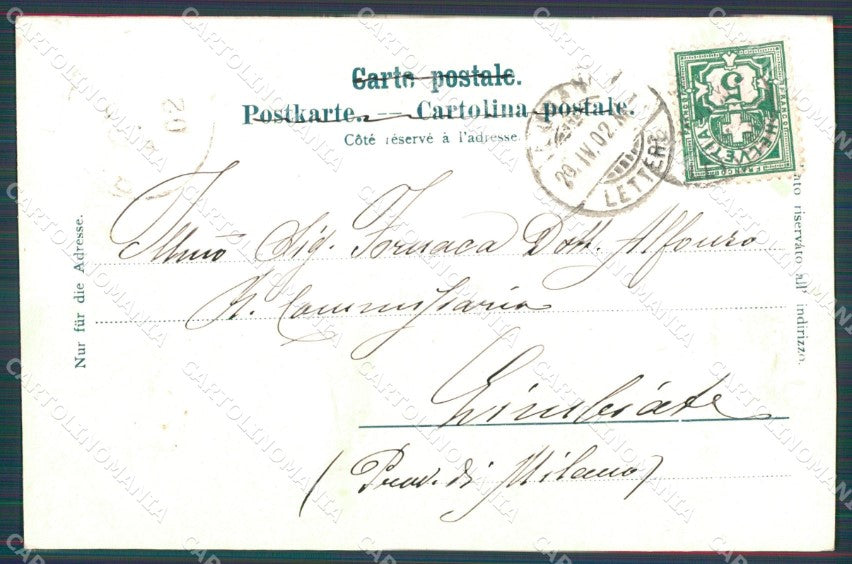 Carte postale.
Postkarte. — Cartolina postale.
Côté réservé à l'adresse.
Nur für die Adresse.
riservato all' indirizzo.
5
HELVETIA
FRANCO
20.IV.02.
LETTERE
20
Illmo Sig. Fornaca Dott. Alfonso
R. Commissario
Limbiate
(Prov. di Milano)
CARTOLINOMANIA